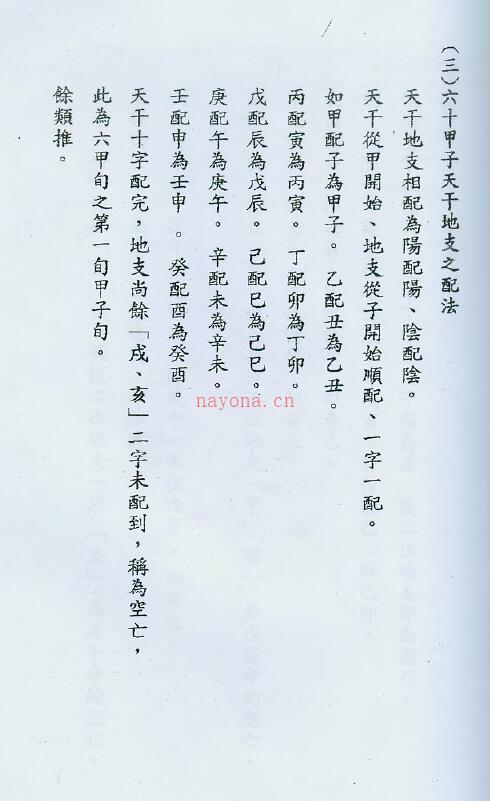 (三)六十甲子天干地支之配法
天干地支相配為陽配陽、陰配陰。
天干從甲開始、地支從子開始順配、一字一配。
如甲配子為甲子。乙配丑為乙丑。
丙配寅為丙寅。丁配卯為丁卯。
戊配辰為戊辰。己配巳為己巳。
庚配午為庚午。辛配未為辛未。
壬配申為壬申。癸配酉為癸酉。
天干十字配完,地支尚餘「戌、亥」二字未配到,稱為空亡,
此為六甲旬之第一旬甲子旬。
餘類推。
nayona.cn